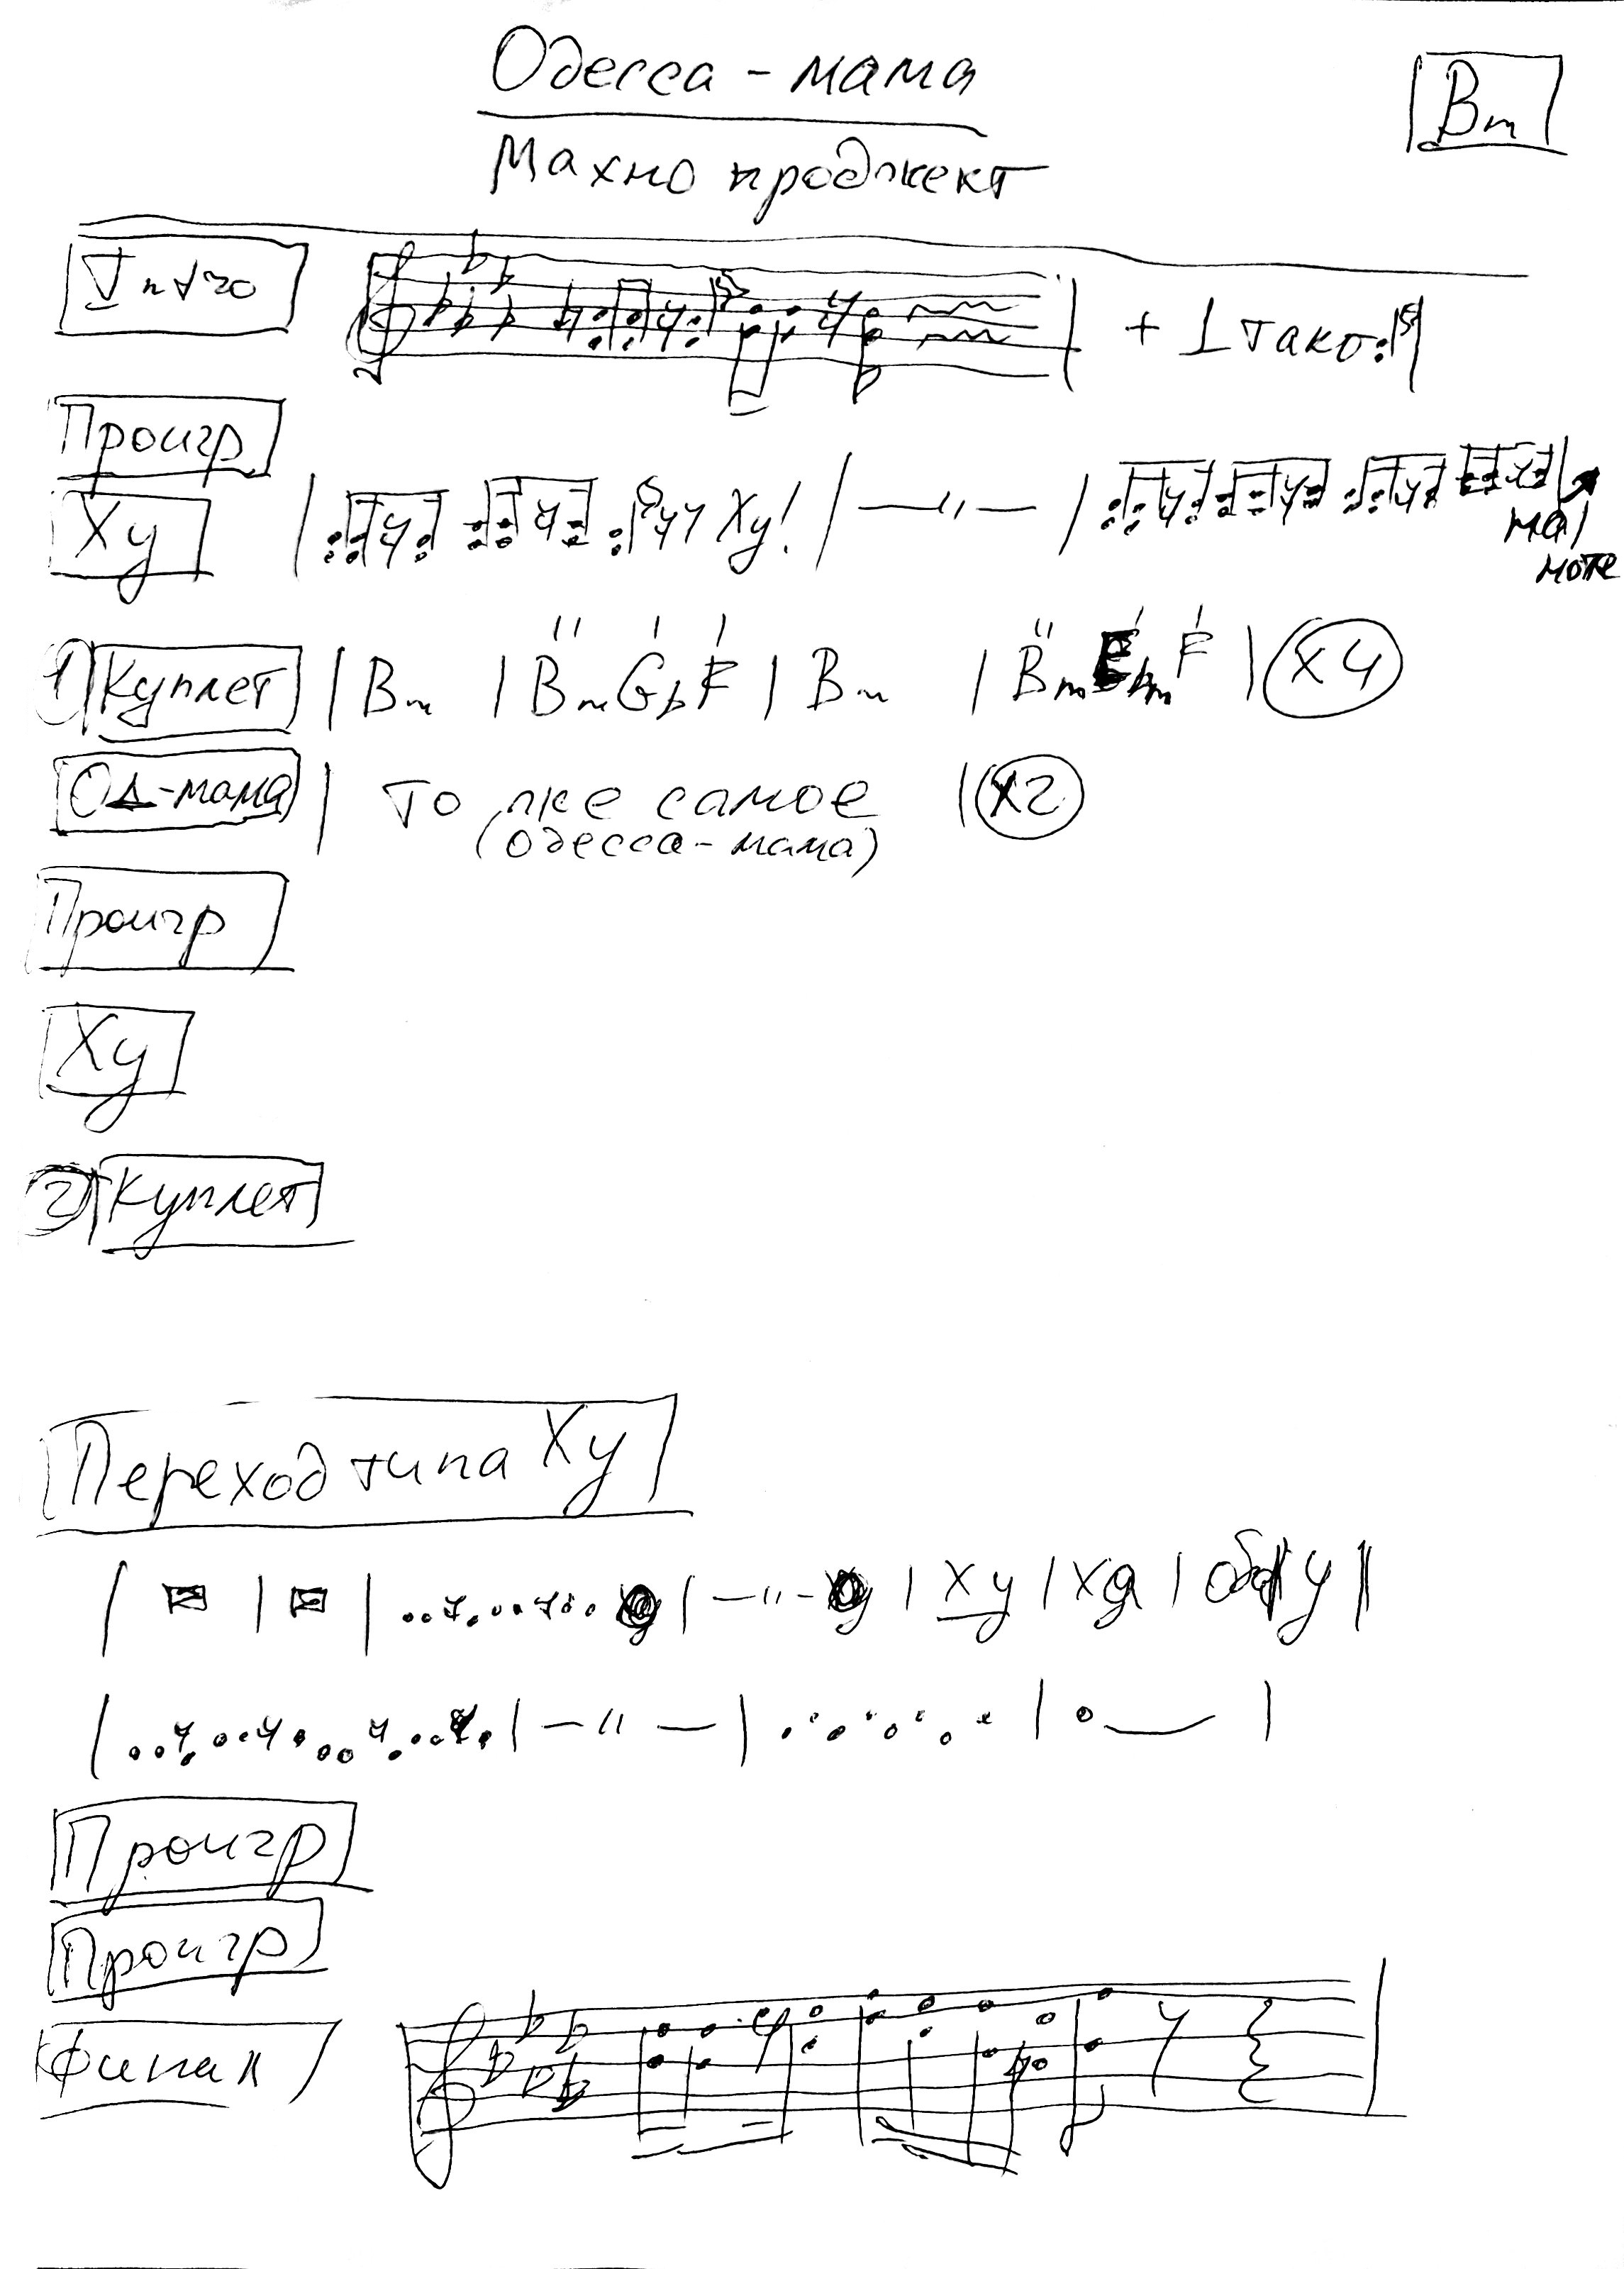 Одесса-мама
Bm
Махно проджект
Intro
+ 1 такт
Проигр
Ху
Ху! | —"— |
на
ноте
1) Куплет | Bm | Bm Gb F | Bm | Bm Ebm F | x4
Од-мама | то же самое | x2
(Одесса-мама)
Проигр
Ху
2) Куплет
Переход типа Ху
—"— | Ху | Ху |
| —"— |
Проигр
Проигр
Финал